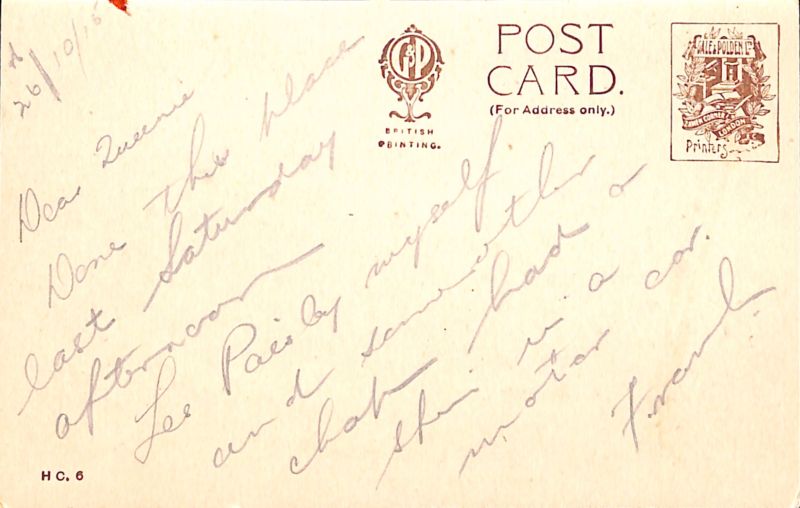 26/10/15
Dear Queenie
Done this place
last Saturday
afternoon
Les Paisley myself
and some other
chap had a
spin in a
motor car.
Frank
G&P
BRITISH
PRINTING.
POST
CARD.
(For Address only.)
GALE & POLDEN LTD
LONDON
Printers
H C. 6